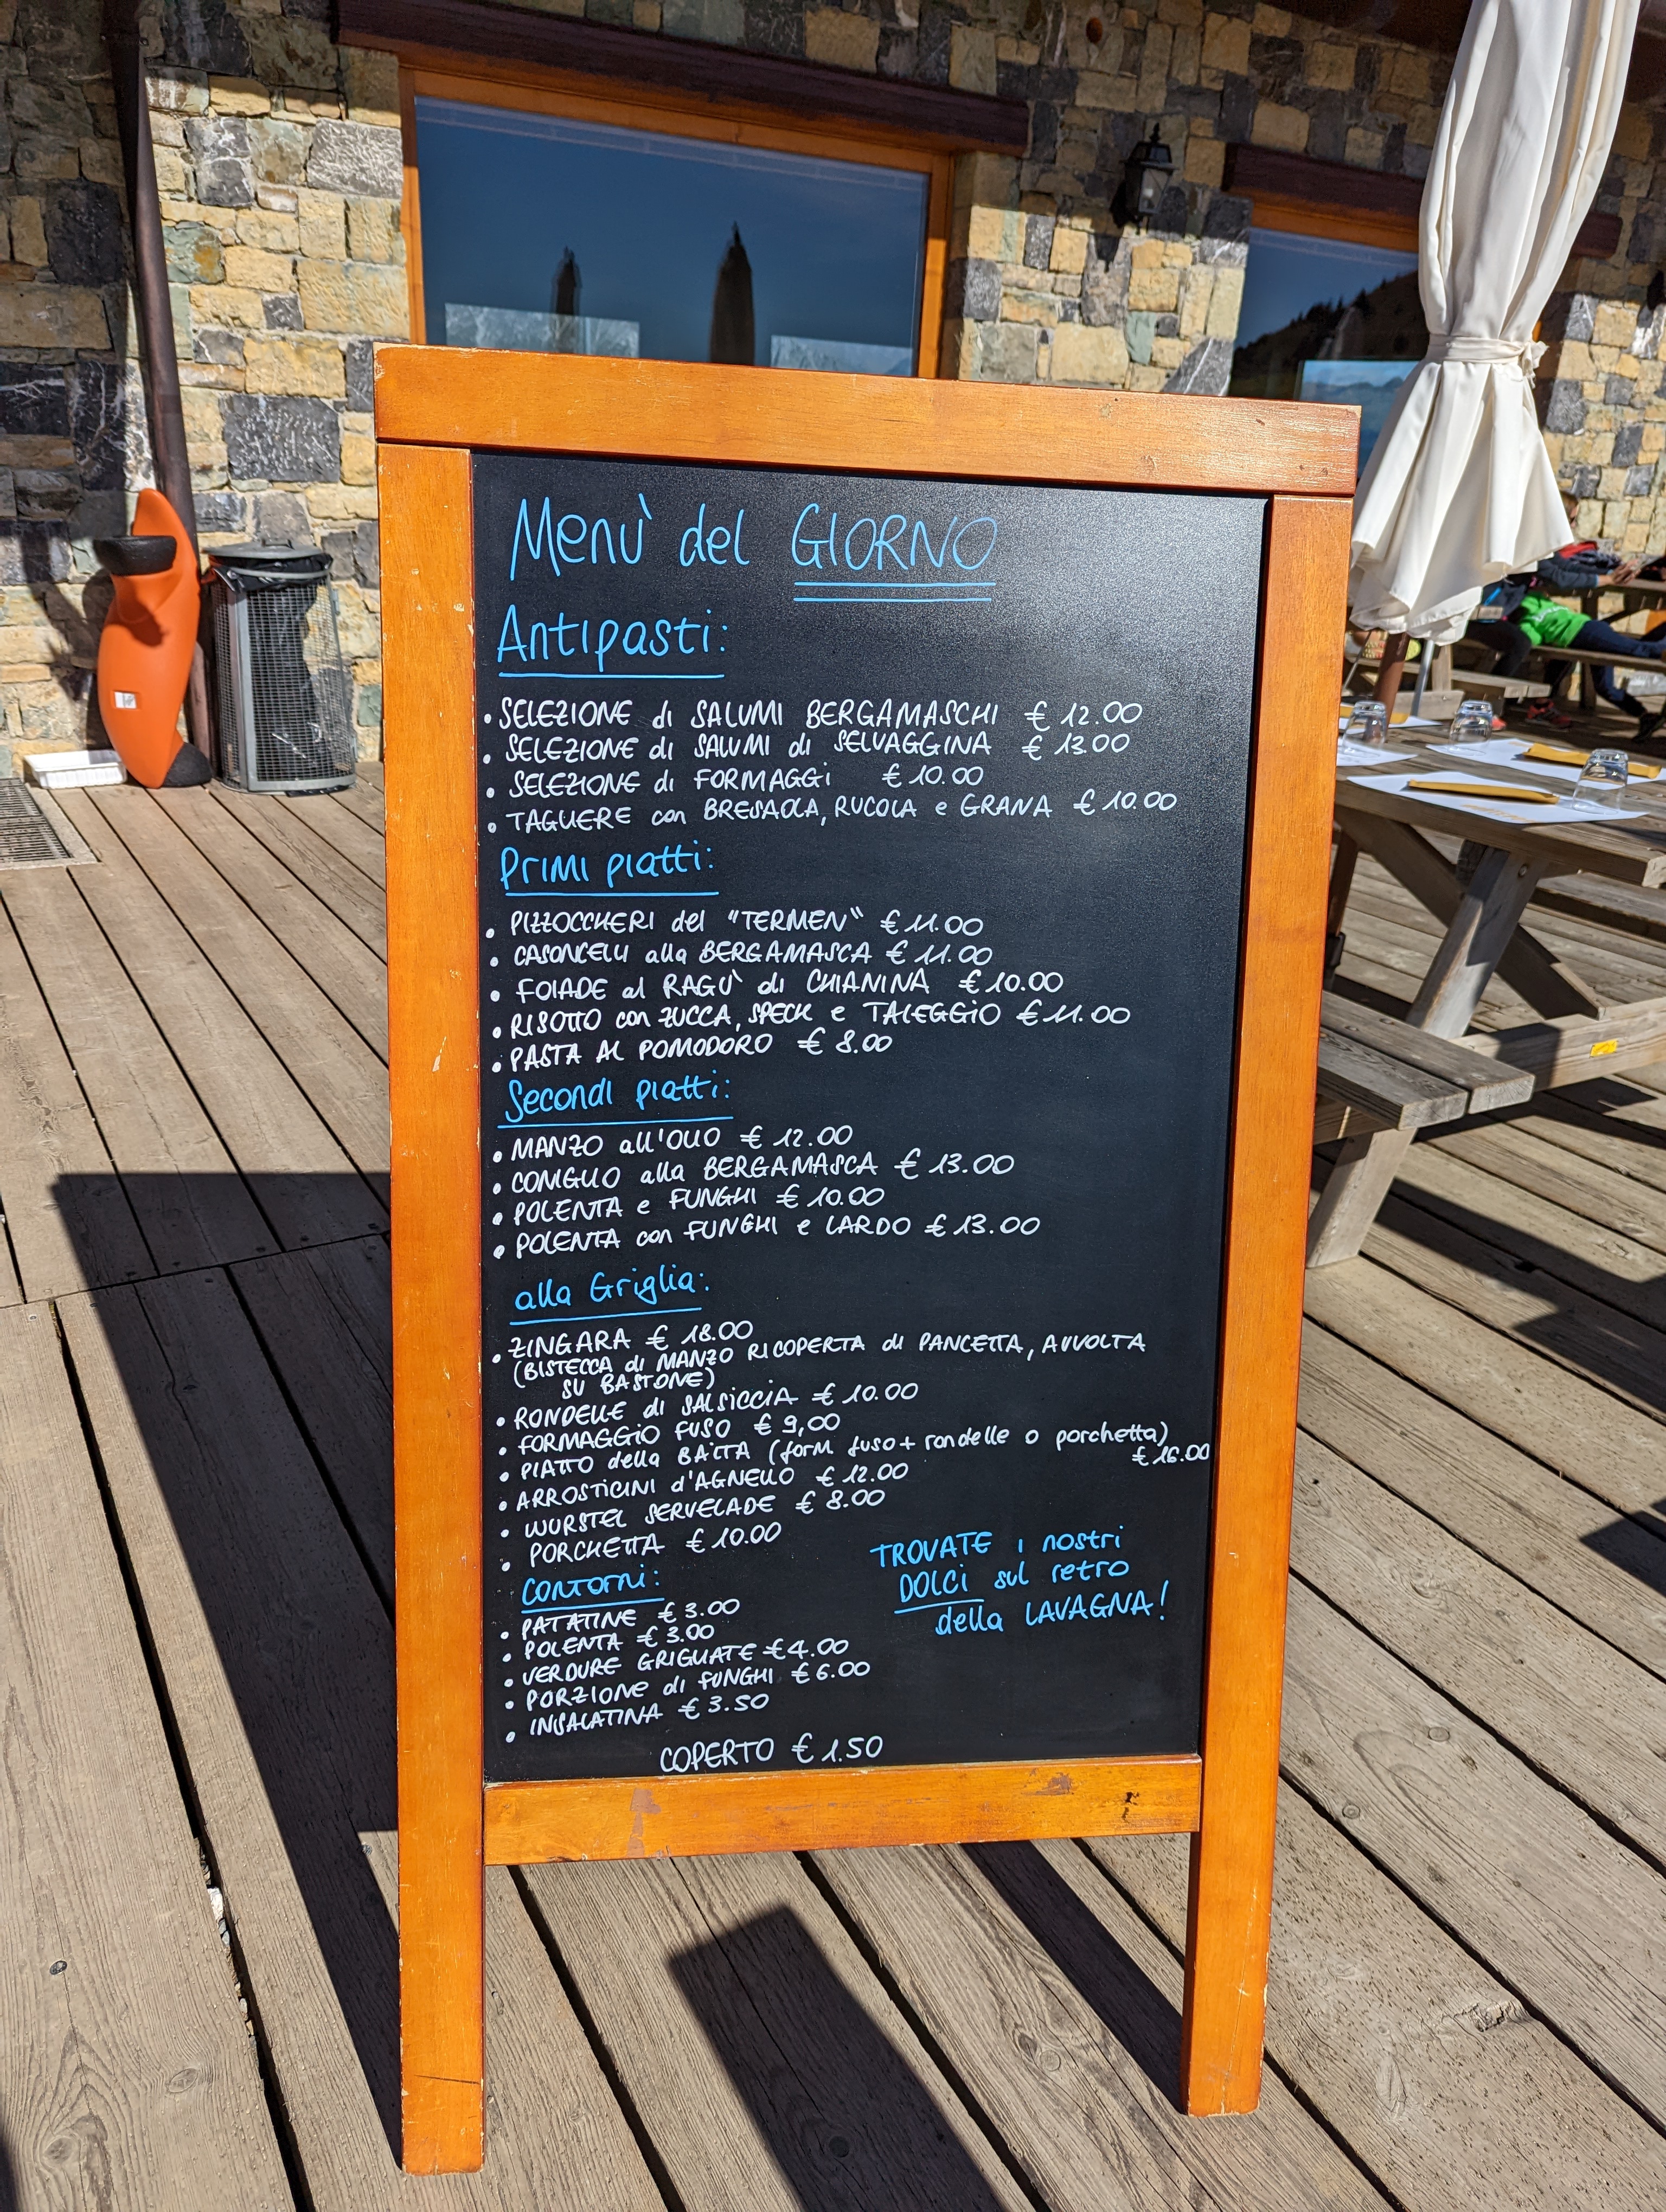 Menù del GIORNO
Antipasti:
• SELEZIONE di SALUMI BERGAMASCHI € 12.00
• SELEZIONE di SALUMI di SELVAGGINA € 13.00
• SELEZIONE di FORMAGGi € 10.00
• TAGLIERE con BRESAOLA, RUCOLA e GRANA € 10.00
Primi piatti:
• PIZZOCCHERI del "TERMEN" € 11.00
• CASONCELLI alla BERGAMASCA € 11.00
• FOIADE al RAGÙ di CHIANINA € 10.00
• RISOTTO con ZUCCA, SPECK e TALEGGIO € 11.00
• PASTA AL POMODORO € 8.00
Secondi piatti:
• MANZO all'OLIO € 12.00
• CONIGLIO alla BERGAMASCA € 13.00
• POLENTA e FUNGHI € 10.00
• POLENTA con FUNGHI e LARDO € 13.00
alla Griglia:
• ZINGARA € 18.00
(BISTECCA di MANZO RICOPERTA di PANCETTA, AVVOLTA
SU BASTONE)
• RONDELLE di SALSICCIA € 10.00
• FORMAGGIO FUSO € 9,00
• PIATTO della BAITA (form fuso + rondelle o porchetta)
€ 16.00
• ARROSTICINI d'AGNELLO € 12.00
• WURSTEL SERVELADE € 8.00
• PORCHETTA € 10.00
Contorni:
• PATATINE € 3.00
• POLENTA € 3.00
• VERDURE GRIGLIATE € 4.00
• PORZIONE di FUNGHI € 6.00
• INSALATINA € 3.50
TROVATE i nostri
DOLCI sul retro
della LAVAGNA!
COPERTO € 1.50